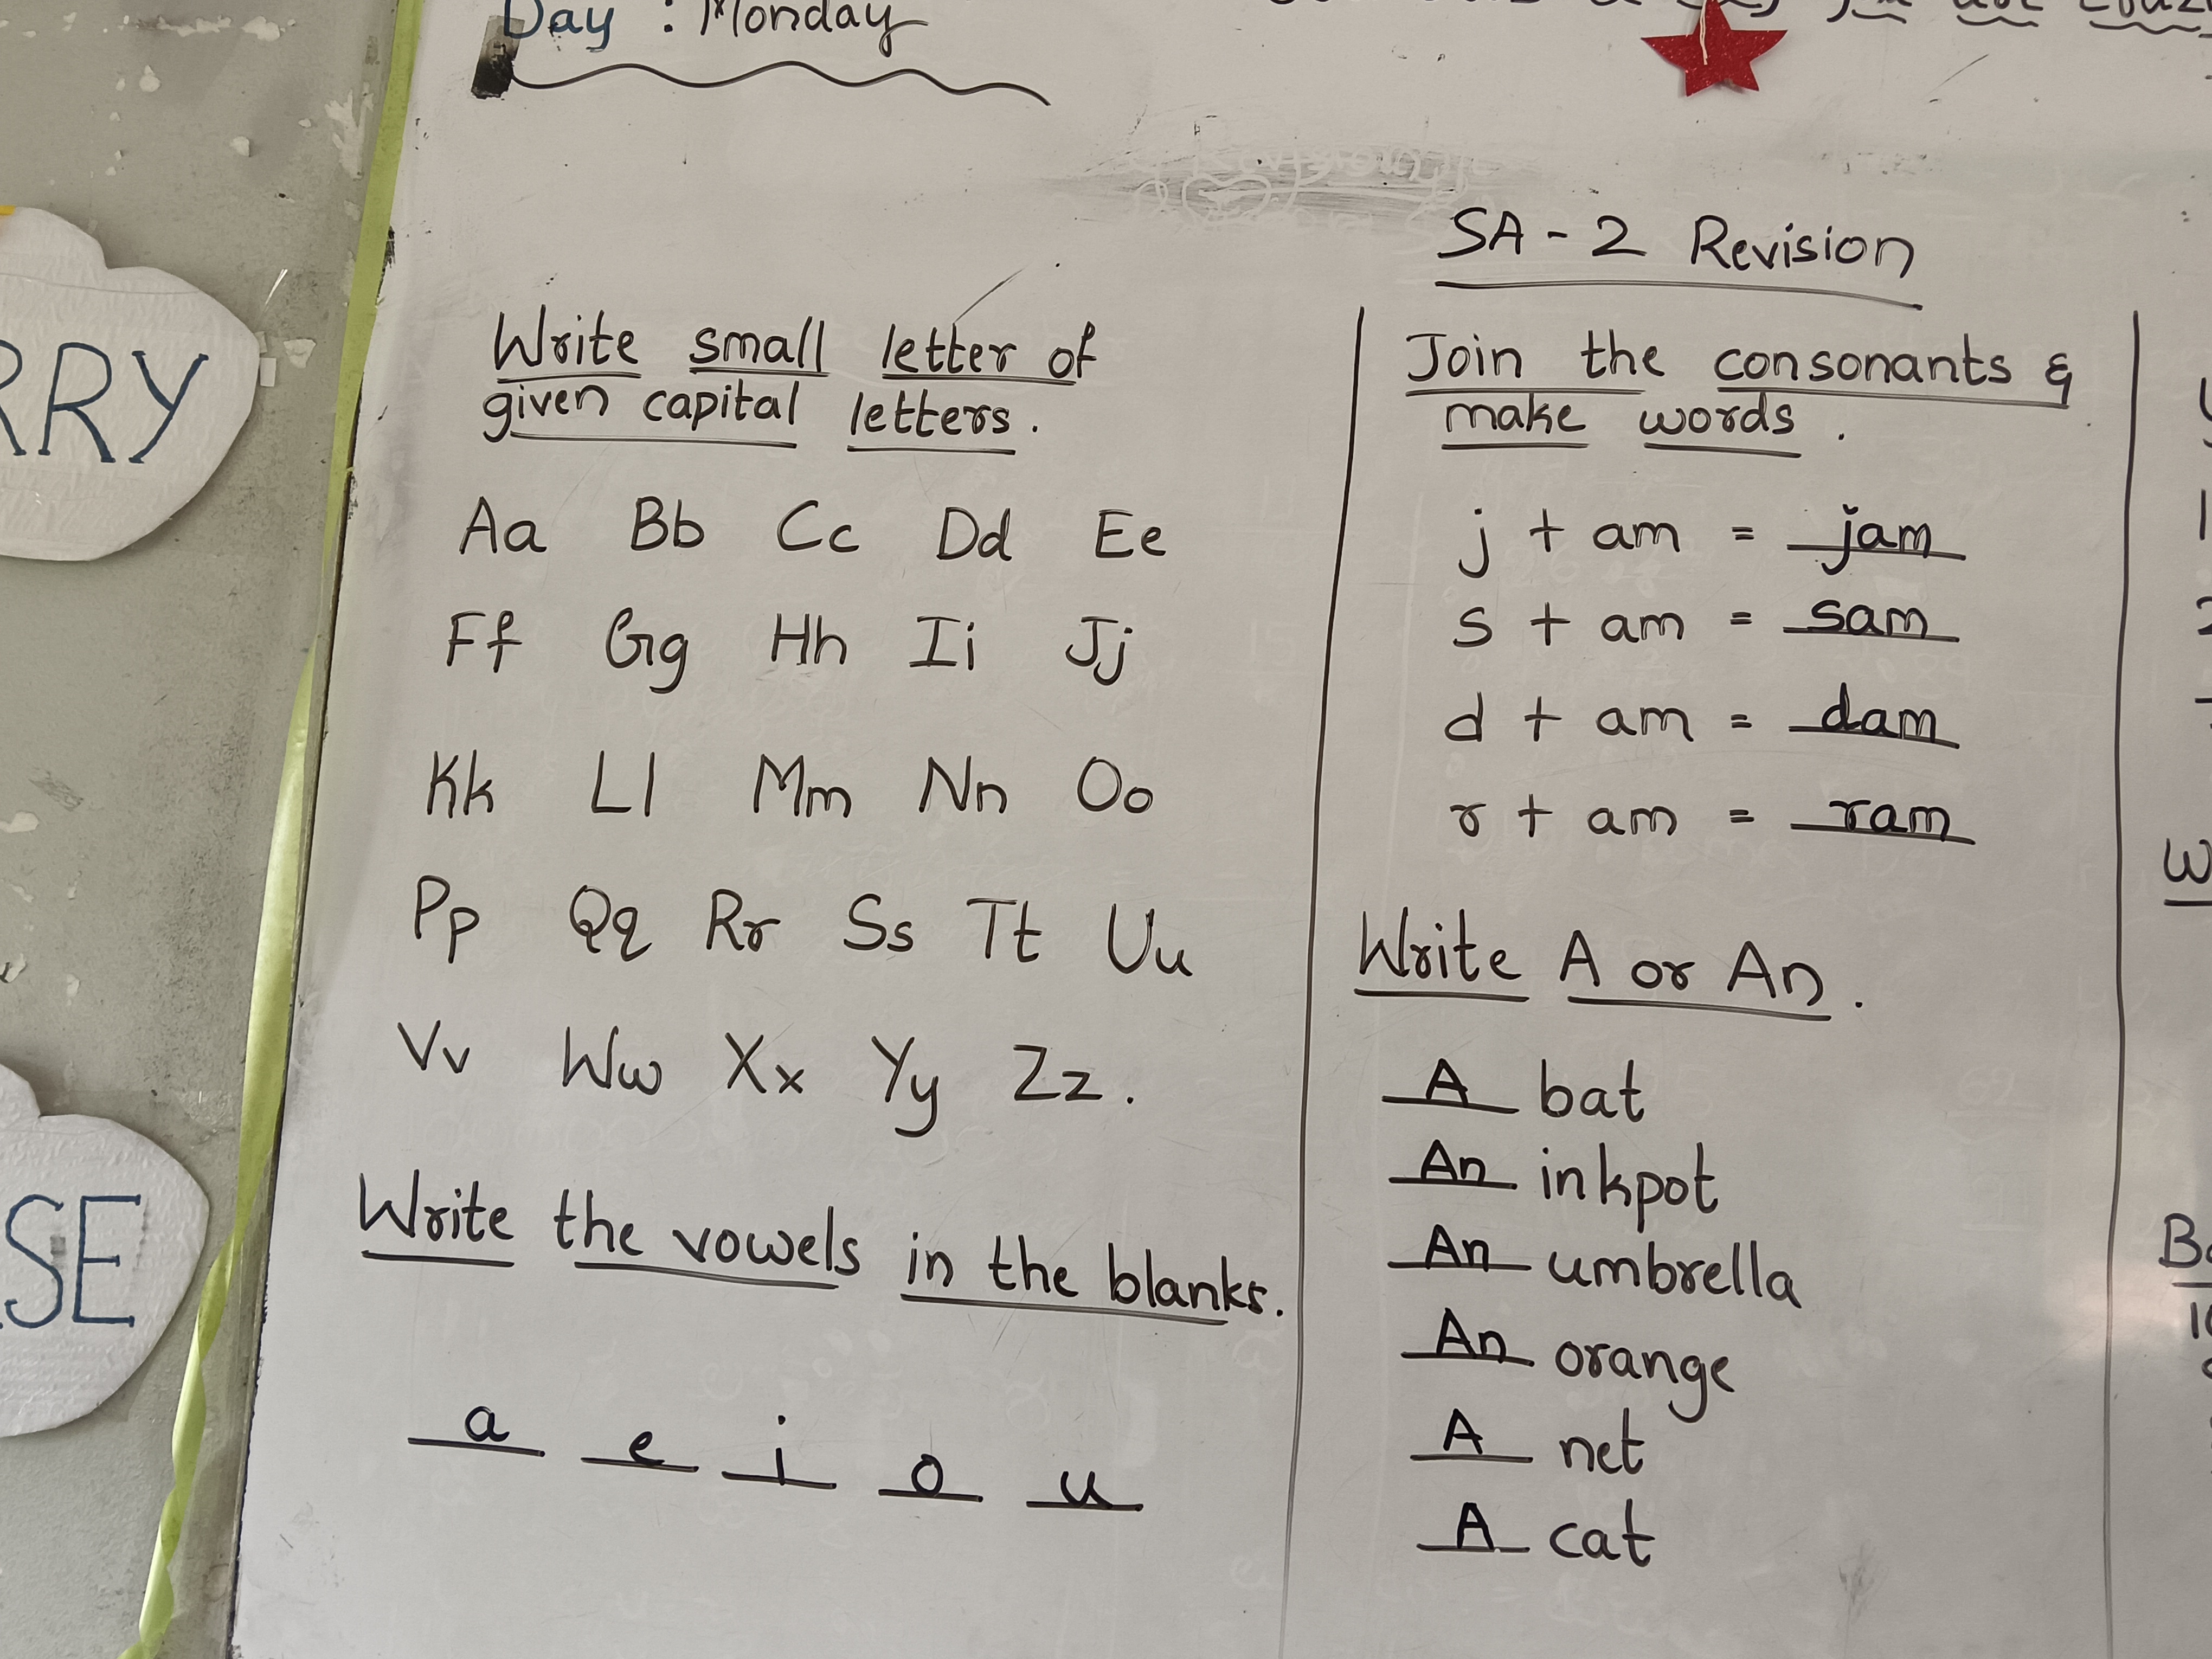 Day : Monday
SA - 2 Revision
Write small letter of
given capital letters.
Aa Bb Cc Dd Ee
Ff Gg Hh Ii Jj
Kk Ll Mm Nn Oo
Pp Qq Rr Ss Tt Uu
Vv Ww Xx Yy Zz.
Write the vowels in the blanks.
a e i o u
Join the consonants &
make words.
j + am = jam
s + am = sam
d + am = dam
r + am = ram
Write A or An.
A bat
An inkpot
An umbrella
An orange
A net
A cat
RRY
SE